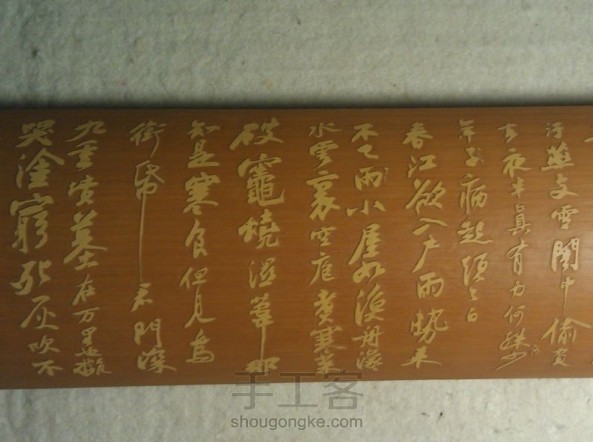 汙燕支雪闇中偷負
去夜半真有力何殊少
年子病起頭已白
春江欲入戶雨勢來
不已雨小屋如漁舟濛
水雲裏空庖煮寒菜
破竈燒濕葦那
知是寒食但見烏
銜帋君門深
九重墳墓在万里也擬
哭塗窮死灰吹不
手工客
shougongke.com